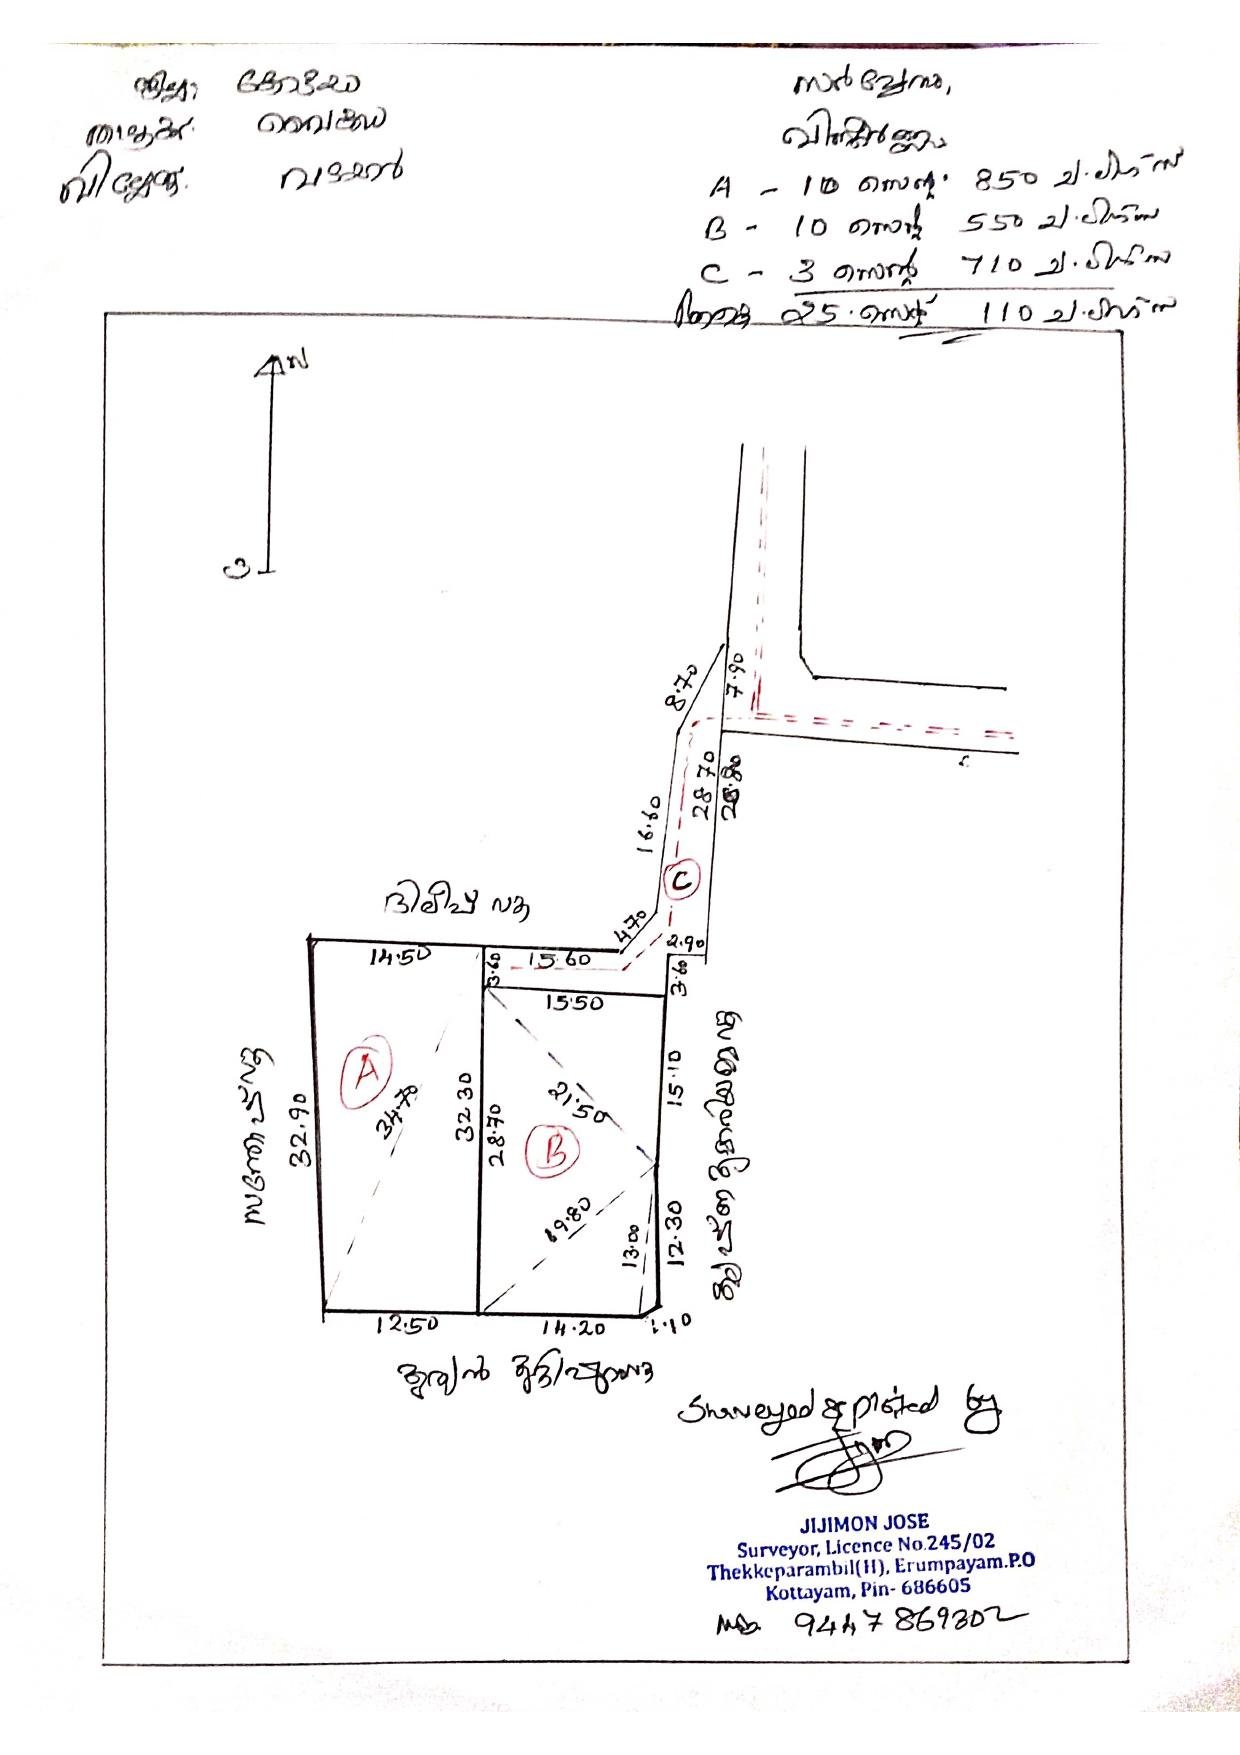 ജില്ല കോട്ടയം
താലൂക്ക് വൈക്കം
വില്ലേജ് വടയാർ
സർവ്വേനം.
വിസ്തീർണ്ണം
A - 10 സെന്റ് 850 ച.ലിങ്ക്സ്
B - 10 സെന്റ് 550 ച.ലിങ്ക്സ്
C - 3 സെന്റ് 710 ച.ലിങ്ക്സ്
ആകെ 25 സെന്റ് 110 ച.ലിങ്ക്സ്
വ
തെ
8.70
7.90
28.70
28.80
16.60
C
ദിലീപ് വക
4.70
2.90
14.50
3.60
15.60
3.60
15.50
A
34.70
32.90
32.30
28.70
21.50
B
15.10
19.80
13.00
12.30
12.50
14.20
1.10
Surveyed & plotted by
JIJIMON JOSE
Surveyor, Licence No.245/02
Thekkeparambil(H), Erumpayam.P.O
Kottayam, Pin- 686605
Mob. 9447869302